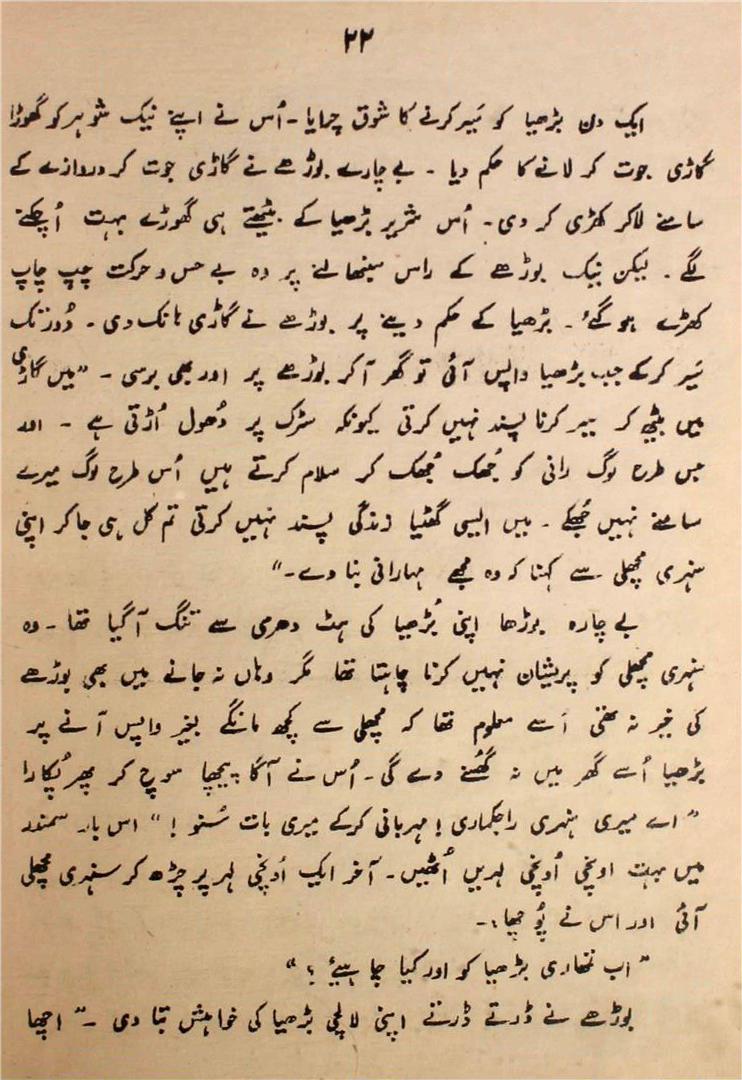 ۲۲
ایک دن بڑھیا کو سَیر کرنے کا شوق چرایا۔ اُس نے اپنے نیک شوہر کو گھوڑا
گاڑی جوت کر لانے کا حکم دیا ۔ بے چارے بوڑھے نے گاڑی جوت کر دروازے کے
سامنے لاکر کھڑی کر دی۔ اُس شریر بڑھیا کے بیٹھتے ہی گھوڑے بہت اُچکنے
لگے ۔ لیکن نیک بوڑھے کے راس سنبھالنے پر وہ بے حس و حرکت چپ چاپ
کھڑے ہو گئے ۔ بڑھیا کے حکم دینے پر بوڑھے نے گاڑی ہانک دی ۔ دُور تک
سَیر کرکے جب بڑھیا واپس آئی تو گھر آکر بوڑھے پر اور بھی برسی ۔ "میں گاڑی
میں بیٹھ کر سیر کرنا پسند نہیں کرتی کیونکہ سڑک پر دُھول اُڑتی ہے ۔ اور
جس طرح لوگ رانی کو جُھک جُھک کر سلام کرتے ہیں اُس طرح لوگ میرے
سامنے نہیں جُھکے ۔ میں ایسی گھٹیا زندگی پسند نہیں کرتی تم کل ہی جاکر اپنی
سنہری مچھلی سے کہنا کہ وہ مجھے مہارانی بنا دے۔"
بے چارہ بوڑھا اپنی بُڑھیا کی ہٹ دھرمی سے تنگ آگیا تھا ۔ وہ
سنہری مچھلی کو پریشان نہیں کرنا چاہتا تھا مگر وہاں نہ جانے میں بھی بوڑھے
کی خیر نہ تھی اُسے معلوم تھا کہ مچھلی سے کچھ مانگے بغیر واپس آنے پر
بڑھیا اُسے گھر میں نہ گُھسنے دے گی۔ اُس نے آگا پیچھا سوچ کر پھر پُکارا
"اے میری سنہری راجکماری ! مہربانی کرکے میری بات سُنو !" اس بار سمندر
میں بہت اونچی اُونچی لہریں اُٹھیں۔ آخر ایک اُونچی لہر پر چڑھ کر سنہری مچھلی
آئی اور اس نے پُوچھا۔
"اب تمھاری بڑھیا کو اور کیا چاہیئے ؟"
بوڑھے نے ڈرتے ڈرتے اپنی لالچی بڑھیا کی خواہش بتا دی ۔" اچھا